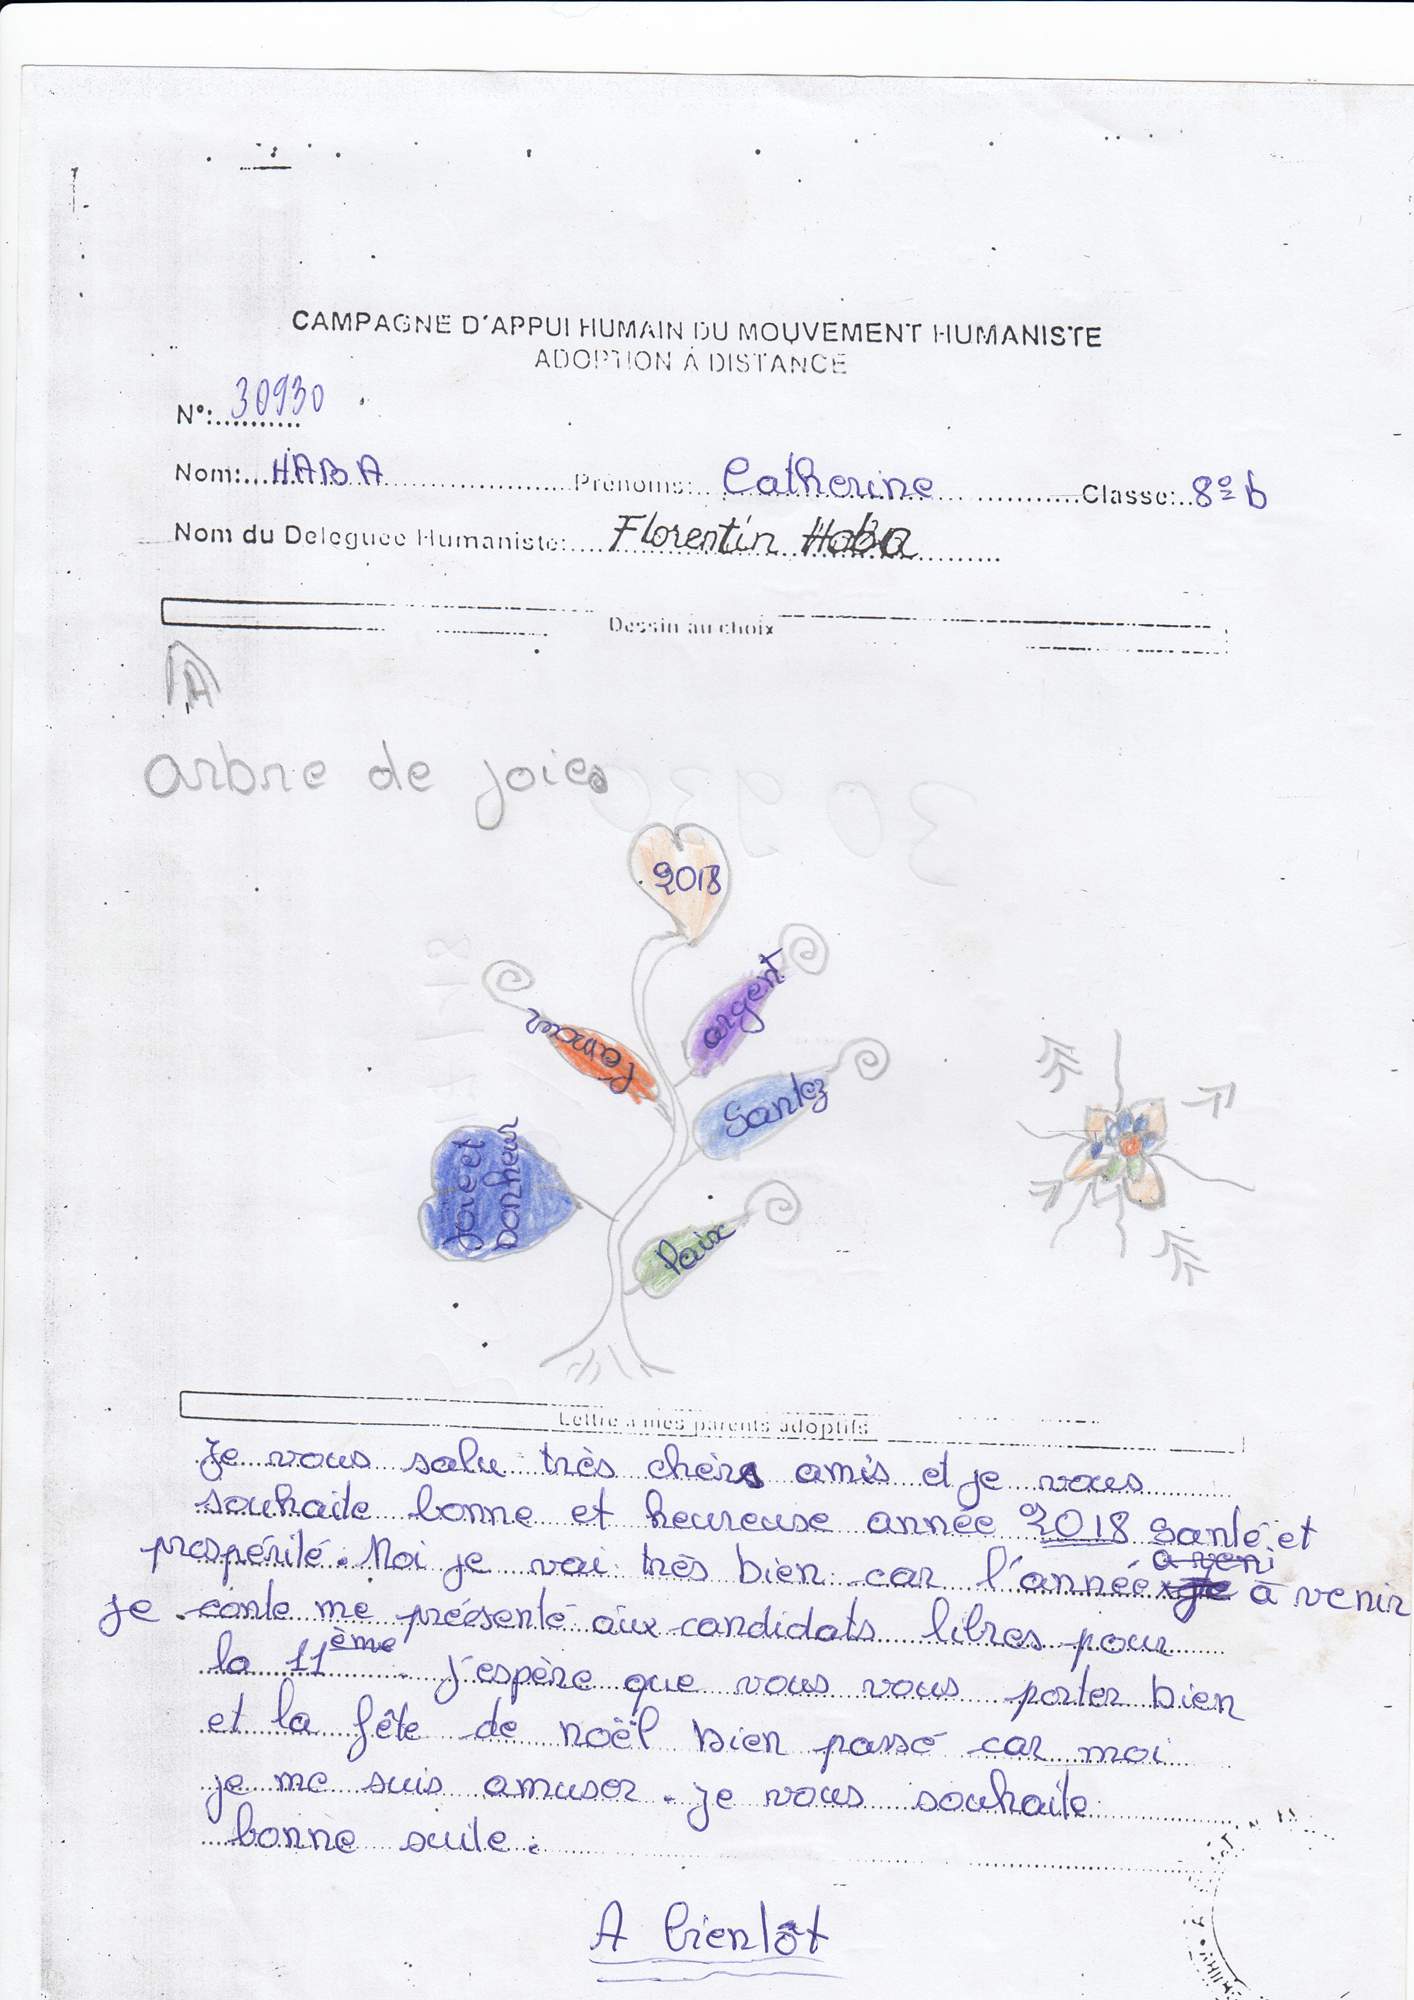 CAMPAGNE D'APPUI HUMAIN DU MOUVEMENT HUMANISTE
ADOPTION À DISTANCE
N°: 30930
Nom: HABA Prénoms: Catherine Classe: 8e b
Nom du Deleguee Humaniste: Florentin Haba
Dessin au choix
A
arbre de joie
30930
2018
argent
l'amour
Santez
joie et
bonheur
Paix
Lettre à mes parents adoptifs
Je vous salu très chèrs amis et je vous
souhaite bonne et heureuse année 2018 santé et
prospérité. Moi je vai très bien car l'année à venir
a veni
je conte me préesenté aux candidats libres pour
la 11ème. J'espère que vous vous porter bien
et la fête de noël bien passé car moi
je me suis amuser. je vous souhaite
bonne suite.
A bientôt